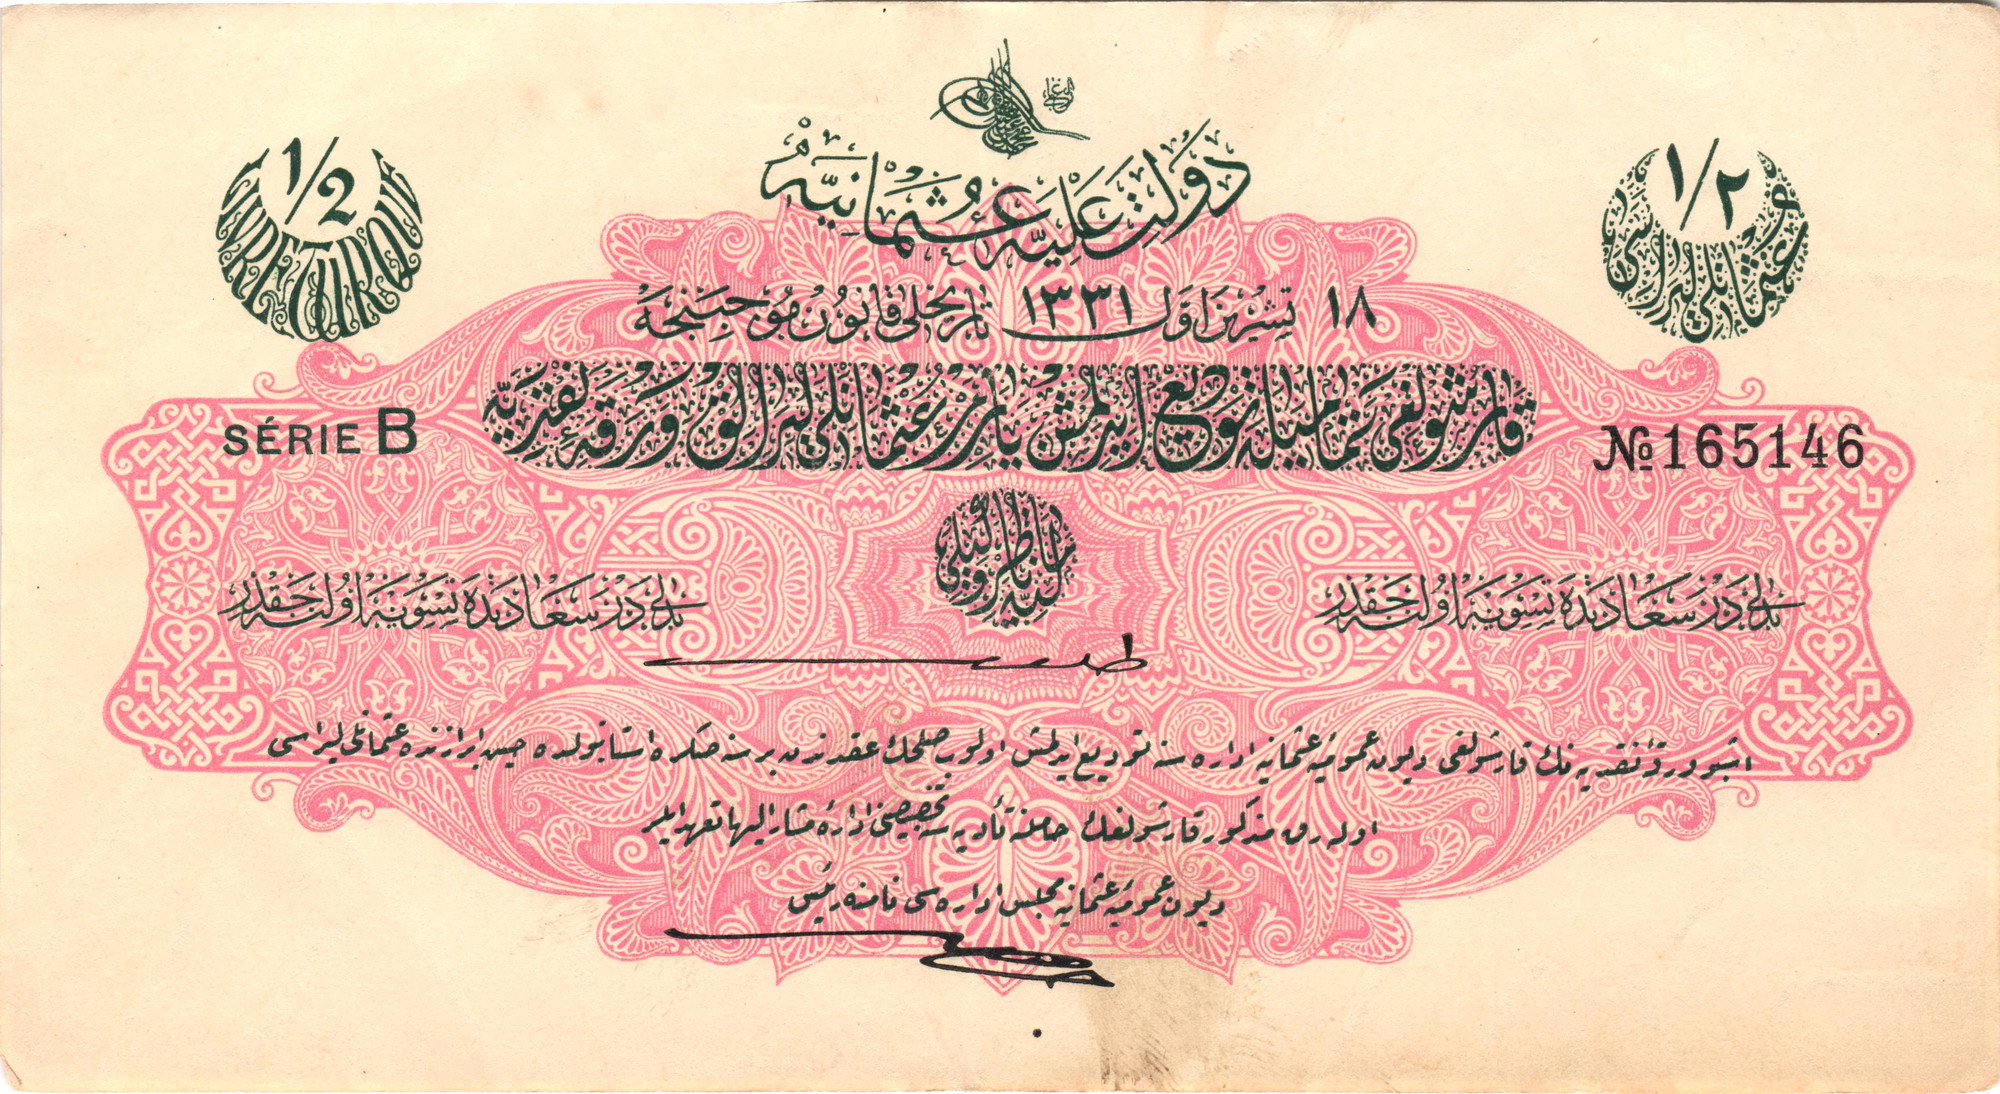 دولت علیه عثمانیه
1/2
LIVRE TURQUE
١/٢
عثمانلی لیراسی
١٨ تشرین اول ١٣٣١ تاریخلی قانون موجبنجه
SÉRIE B
قارشولغی تمامیله تودیع ایدلمش یارم عثمانلی لیرالق ورقه نقدیه
№165146
مالیه ناظری وکیلی
بدلی درسعادتده تسویه اولنه جقدر
بدلی درسعادتده تسویه اولنه جقدر
اشبو ورقۀ نقدیه نك قارشولغی دیون عمومیۀ عثمانیه اداره سنه تودیع ایدلمش اولوب صلحك عقدندن بر سنه صكره استانبولده عثمانلی لیراسی
اوله رق مذكور قارشولغك حاملنه تأدیه سنه تخصیصنی ادارۀ مشار الیها تعهد ایلر
دیون عمومیۀ عثمانیه مجلس اداره سی نامنه رئیس